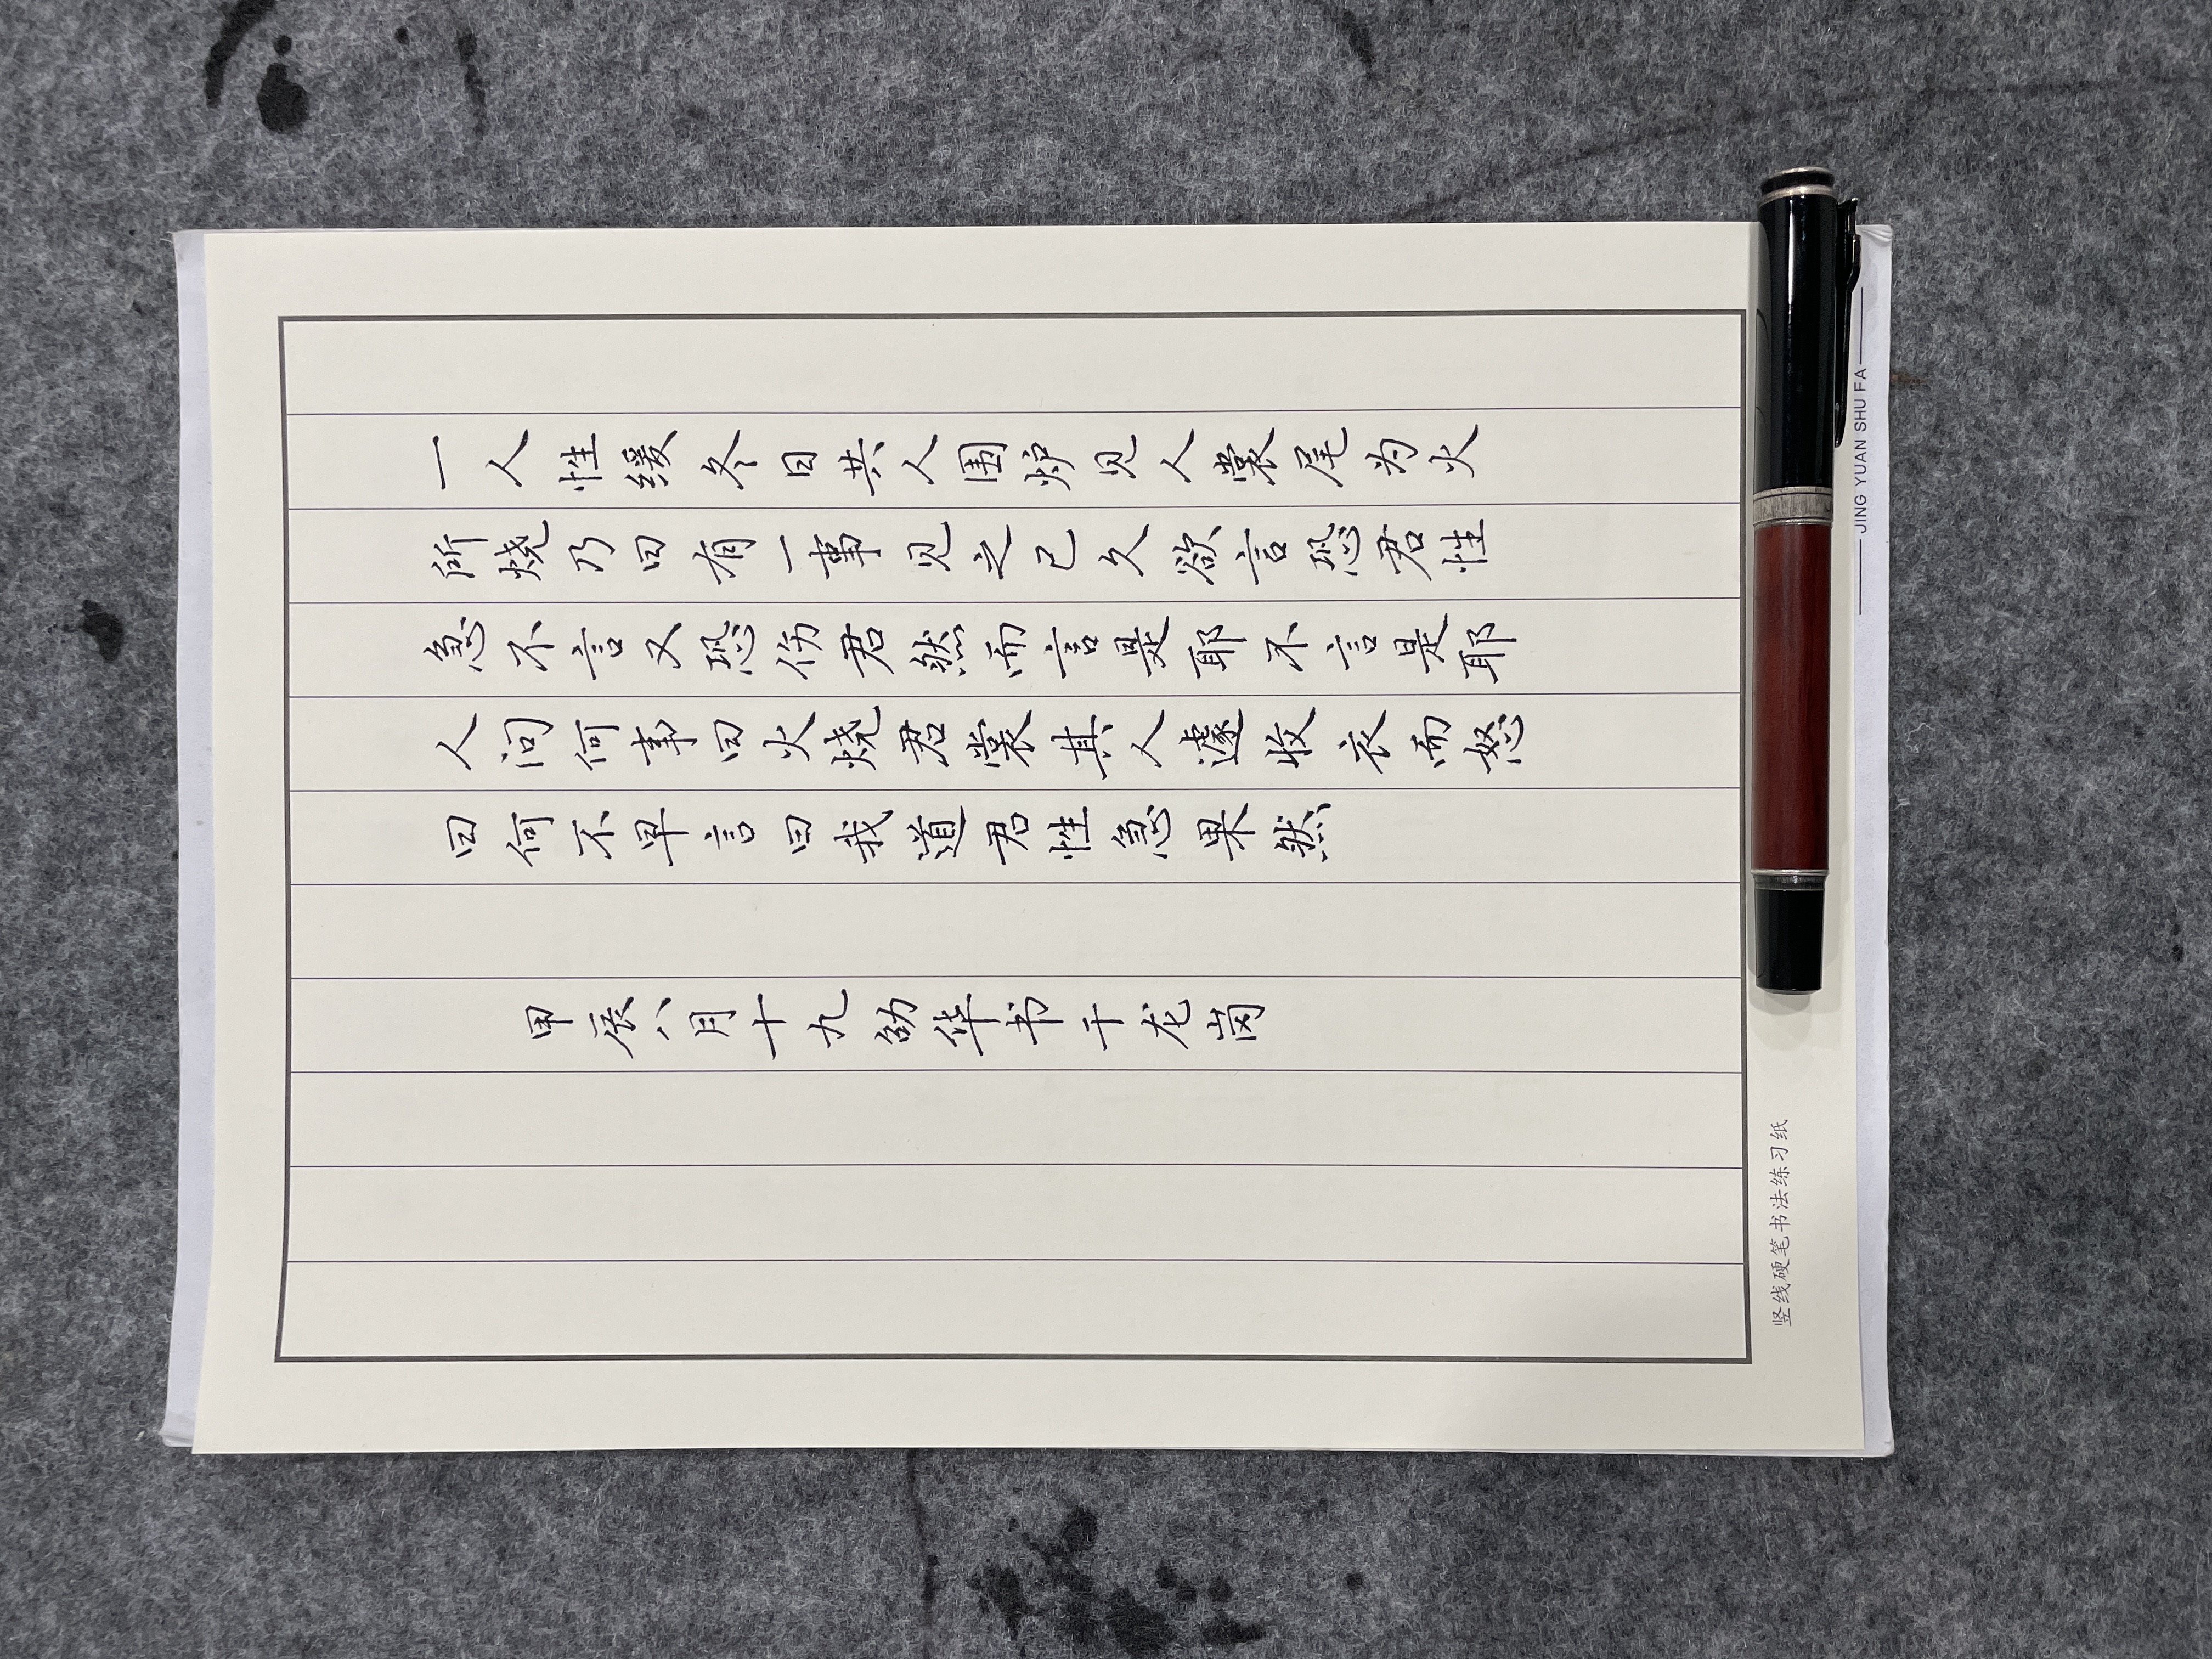 一人性缓冬日共人围炉见人裳尾为火
所烧乃曰有一事见之已久欲言恐君性
急不言又恐伤君然而言是耶不言是耶
人问何事曰火烧君裳其人遽收衣而怒
曰何不早言曰我道君性急果然
甲辰八月十九劭华书于龙岗
竖线硬笔书法练习纸
JING YUAN SHU FA